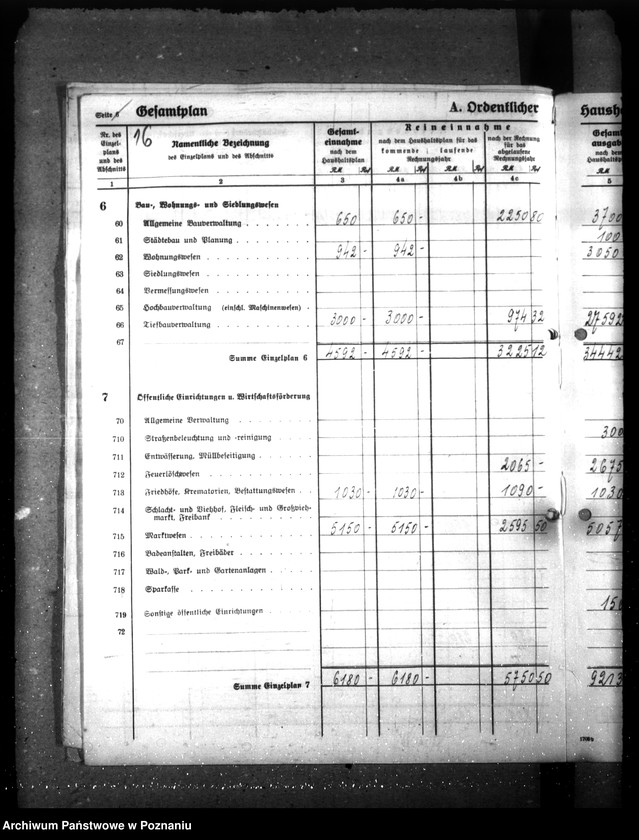 Seite 6 Gesamtplan A. Ordentlicher Haush
16
Nr. des Einzelplans und des Abschnitts
Namentliche Bezeichnung
des Einzelplans und des Abschnitts
Gesamteinnahme nach dem Haushaltsplan RM Rpf
Reineinnahme
nach dem Haushaltsplan für das
kommende laufende
Rechnungsjahr
RM Rpf RM Rpf
nach der Rechnung für das abgelaufene Rechnungsjahr RM Rpf
Gesamt
ausgab
nach dem
Haushaltspl
RM
1 2 3 4a 4b 4c 5
6 Bau-, Wohnungs- und Siedlungswesen
60 Allgemeine Bauverwaltung 650 650 - 2250 80 3700
61 Städtebau und Planung 100
62 Wohnungswesen 942 - 942 - 3050
63 Siedlungswesen
64 Vermessungswesen
65 Hochbauverwaltung (einschl. Maschinenwesen)
66 Tiefbauverwaltung 3000 - 3000 - 974 32 27592
67
Summe Einzelplan 6 4592 - 4592 - 3225 12 34442
7 Öffentliche Einrichtungen u. Wirtschaftsförderung
70 Allgemeine Verwaltung
710 Straßenbeleuchtung und -reinigung 300
711 Entwässerung, Müllbeseitigung
712 Feuerlöschwesen 2065 - 2675
713 Friedhöfe, Krematorien, Bestattungswesen 1030 - 1030 - 1090 - 1030
714 Schlacht- und Viehhof, Fleisch- und Großviehmarkt, Freibank
715 Marktwesen 5150 - 5150 - 2595 50 5057
716 Badeanstalten, Freibäder
717 Wald-, Park- und Gartenanlagen
718 Sparkasse
719 Sonstige öffentliche Einrichtungen 150
72
Summe Einzelplan 7 6180 - 6180 - 5750 50 9213
Archiwum Państwowe w Poznaniu